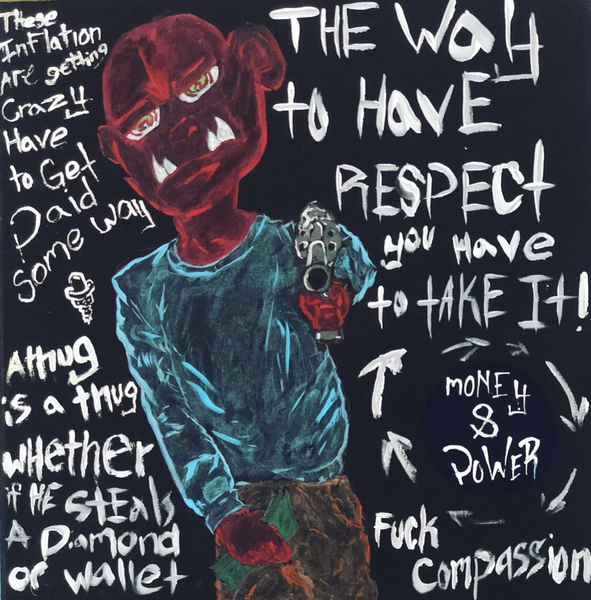 These
InflAtion
Are getting
Crazy
Have
to Get
Paid
Some way
THE WAy
to HAvE
RESPEct
you Have
to tAKE It!
MONEy
&
POWER
FUcK
compassion
A thug
is a thug
wHether
if HE StEals
A Diamond
or wallet